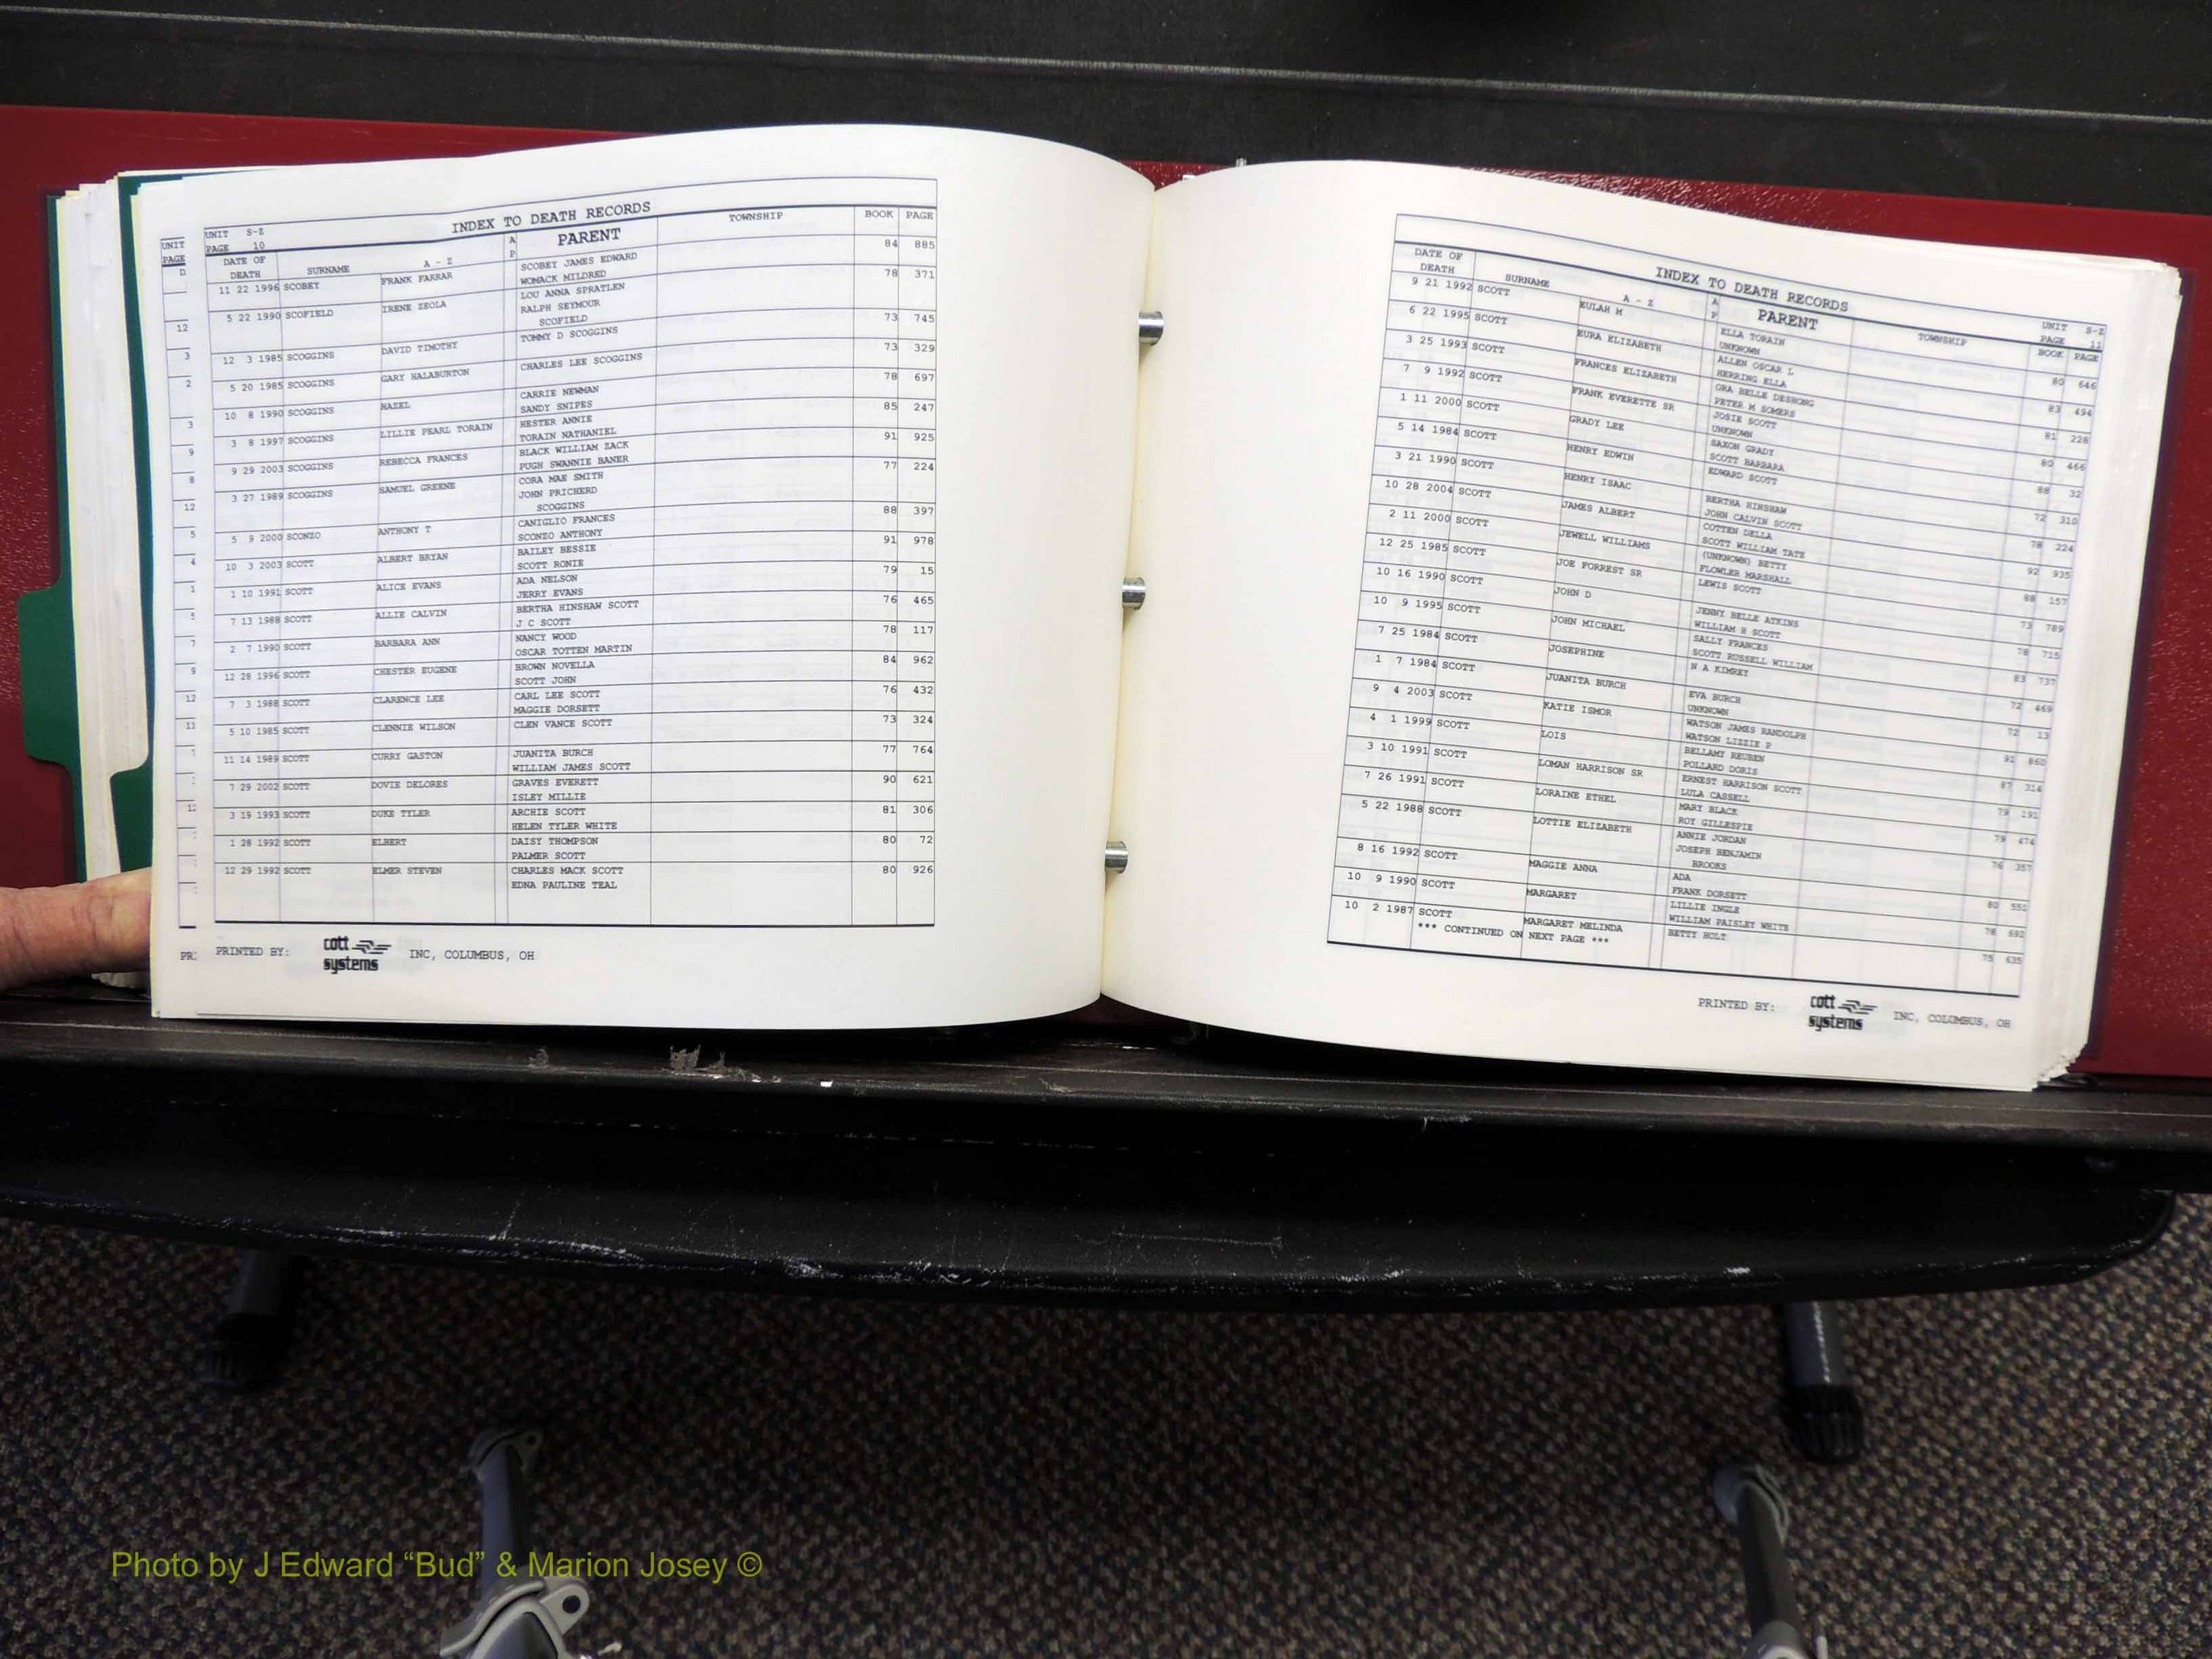 UNIT S-Z
PAGE 10
INDEX TO DEATH RECORDS
DATE OF DEATH SURNAME A - Z A P PARENT TOWNSHIP BOOK PAGE
11 22 1996 SCOBEY FRANK FARRAR SCOBEY JAMES EDWARD 84 885
WOMACK MILDRED
5 22 1990 SCOFIELD IRENE ZEOLA LOU ANNA SPRATLEN 78 371
RALPH SEYMOUR
SCOFIELD
12 3 1985 SCOGGINS DAVID TIMOTHY TOMMY D SCOGGINS 73 745
5 20 1985 SCOGGINS GARY HALABURTON CHARLES LEE SCOGGINS 73 329
10 8 1990 SCOGGINS HAZEL CARRIE NEWMAN 78 697
SANDY SNIPES
3 8 1997 SCOGGINS LILLIE PEARL TORAIN HESTER ANNIE 85 247
TORAIN NATHANIEL
9 29 2003 SCOGGINS REBECCA FRANCES BLACK WILLIAM ZACK 91 925
PUGH SWANNIE BANER
3 27 1989 SCOGGINS SAMUEL GREENE CORA MAE SMITH 77 224
JOHN PRICHERD
SCOGGINS
5 9 2000 SCONZO ANTHONY T CANIGLIO FRANCES 88 397
SCONZO ANTHONY
10 3 2003 SCOTT ALBERT BRYAN BAILEY BESSIE 91 978
SCOTT RONIE
1 10 1991 SCOTT ALICE EVANS ADA NELSON 79 15
JERRY EVANS
7 13 1988 SCOTT ALLIE CALVIN BERTHA HINSHAW SCOTT 76 465
J C SCOTT
2 7 1990 SCOTT BARBARA ANN NANCY WOOD 78 117
OSCAR TOTTEN MARTIN
12 28 1996 SCOTT CHESTER EUGENE BROWN NOVELLA 84 962
SCOTT JOHN
7 3 1988 SCOTT CLARENCE LEE CARL LEE SCOTT 76 432
MAGGIE DORSETT
5 10 1985 SCOTT CLENNIE WILSON CLEN VANCE SCOTT 73 324
11 14 1989 SCOTT CURRY GASTON JUANITA BURCH 77 764
WILLIAM JAMES SCOTT
7 29 2002 SCOTT DOVIE DELORES GRAVES EVERETT 90 621
ISLEY MILLIE
3 19 1993 SCOTT DUKE TYLER ARCHIE SCOTT 81 306
HELEN TYLER WHITE
1 28 1992 SCOTT ELBERT DAISY THOMPSON 80 72
PALMER SCOTT
12 29 1992 SCOTT ELMER STEVEN CHARLES MACK SCOTT 80 926
EDNA PAULINE TEAL
PRINTED BY: cott systems INC, COLUMBUS, OH
INDEX TO DEATH RECORDS
UNIT S-Z
PAGE 11
DATE OF DEATH SURNAME A - Z A P PARENT TOWNSHIP BOOK PAGE
9 21 1992 SCOTT EULAH M ELLA TORAIN 80 646
UNKNOWN
6 22 1995 SCOTT EURA ELIZABETH ALLEN OSCAR L 83 494
HERRING ELLA
3 25 1993 SCOTT FRANCES ELIZABETH ORA BELLE DESHONG 81 228
PETER M SOMERS
7 9 1992 SCOTT FRANK EVERETTE SR JOSIE SCOTT 80 466
UNKNOWN
1 11 2000 SCOTT GRADY LEE SAXON GRADY 88 32
SCOTT BARBARA
5 14 1984 SCOTT HENRY EDWIN EDWARD SCOTT 72 310
3 21 1990 SCOTT HENRY ISAAC BERTHA HINSHAW 78 224
JOHN CALVIN SCOTT
10 28 2004 SCOTT JAMES ALBERT COTTEN DELLA 92 935
SCOTT WILLIAM TATE
2 11 2000 SCOTT JEWELL WILLIAMS (UNKNOWN) BETTY 88 157
FLOWLER MARSHALL
12 25 1985 SCOTT JOE FORREST SR LEWIS SCOTT 73 789
10 16 1990 SCOTT JOHN D JENNY BELLE ATKINS 78 715
WILLIAM H SCOTT
10 9 1995 SCOTT JOHN MICHAEL SALLY FRANCES 83 737
SCOTT RUSSELL WILLIAM
7 25 1984 SCOTT JOSEPHINE N A KIMREY 72 469
1 7 1984 SCOTT JUANITA BURCH EVA BURCH 72 13
UNKNOWN
9 4 2003 SCOTT KATIE ISMOR WATSON JAMES RANDOLPH 91 860
WATSON LIZZIE P
4 1 1999 SCOTT LOIS BELLAMY REUBEN 87 314
POLLARD DORIS
3 10 1991 SCOTT LOMAN HARRISON SR ERNEST HARRISON SCOTT 79 191
LULA CASSELL
7 26 1991 SCOTT LORAINE ETHEL MARY BLACK 79 474
ROY GILLESPIE
5 22 1988 SCOTT LOTTIE ELIZABETH ANNIE JORDAN 76 357
JOSEPH BENJAMIN
BROOKS
8 16 1992 SCOTT MAGGIE ANNA ADA 80 551
FRANK DORSETT
10 9 1990 SCOTT MARGARET LILLIE INGLE 78 692
WILLIAM PAISLEY WHITE
10 2 1987 SCOTT MARGARET MELINDA BETTY HOLT 75 635
*** CONTINUED ON NEXT PAGE ***
PRINTED BY: cott systems INC, COLUMBUS, OH
Photo by J Edward “Bud” & Marion Josey ©